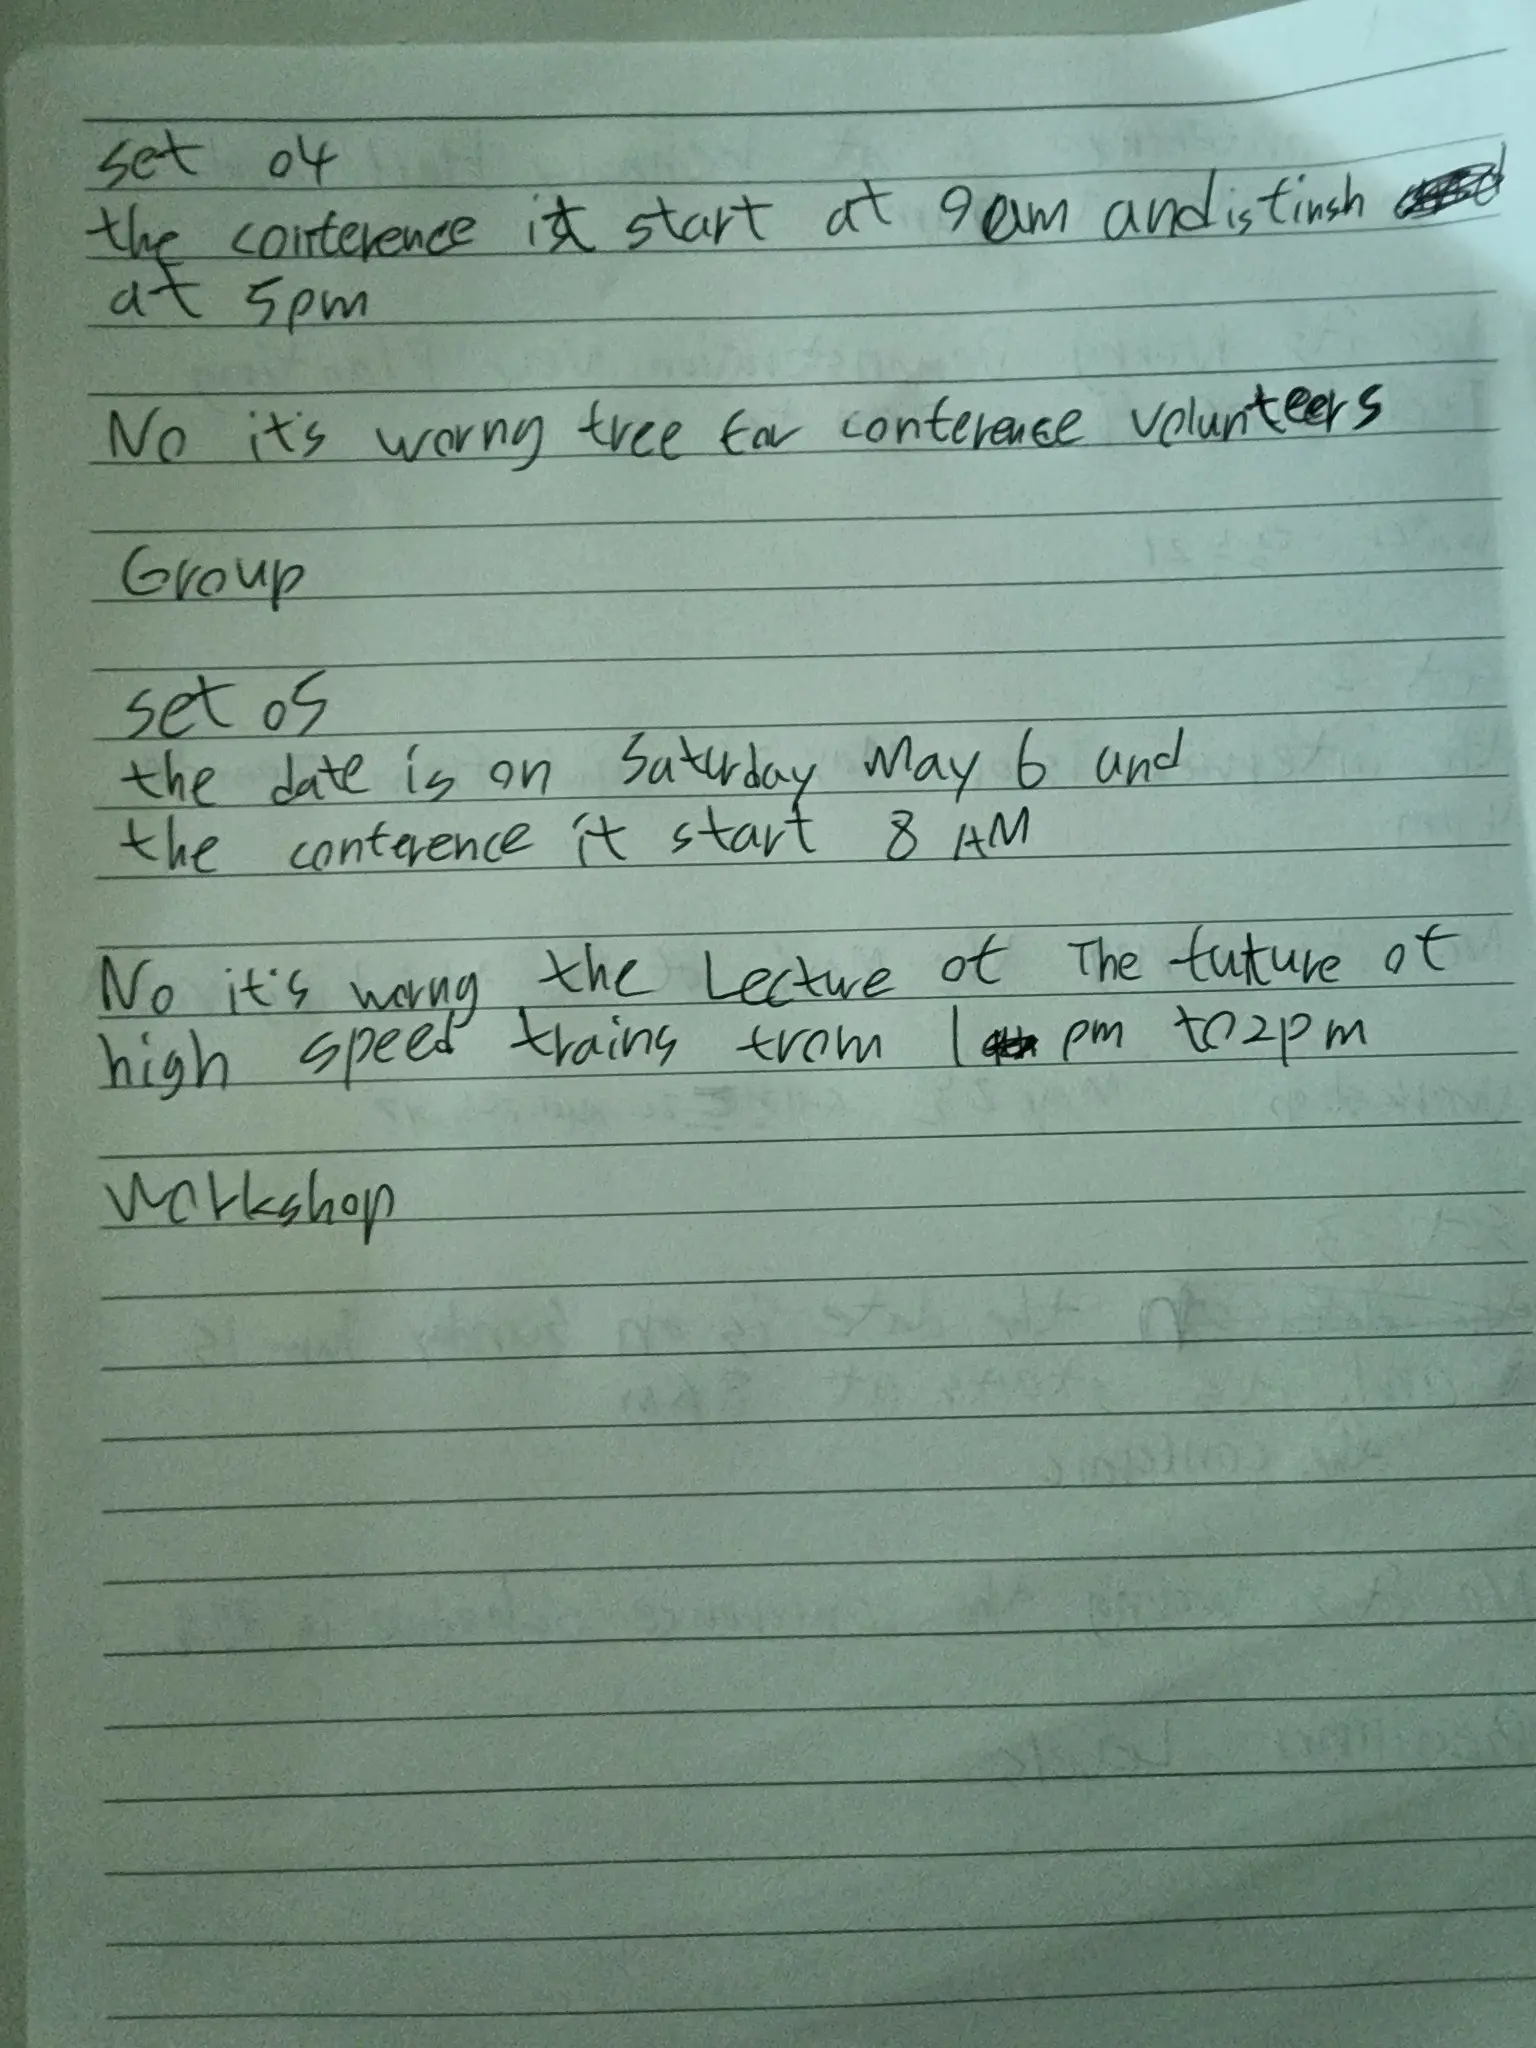 set 04
the conterence it start at 9am and is tinsh
at 5pm
No it's worng tree for conterence volunteers
Group
set 05
the date is on Saturday May 6 and
the conterence it start 8 AM
No it's worng the Lecture ot The tuture ot
high speed trains trom 1 pm to 2pm
Workshop